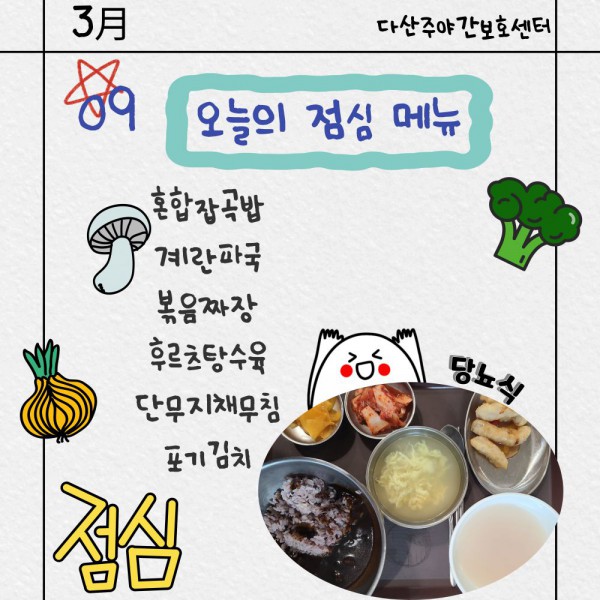 3月
다산주야간보호센터
09
오늘의 점심 메뉴
혼합잡곡밥
계란파국
볶음짜장
후르츠탕수육
단무지채무침
포기김치
당뇨식
점심